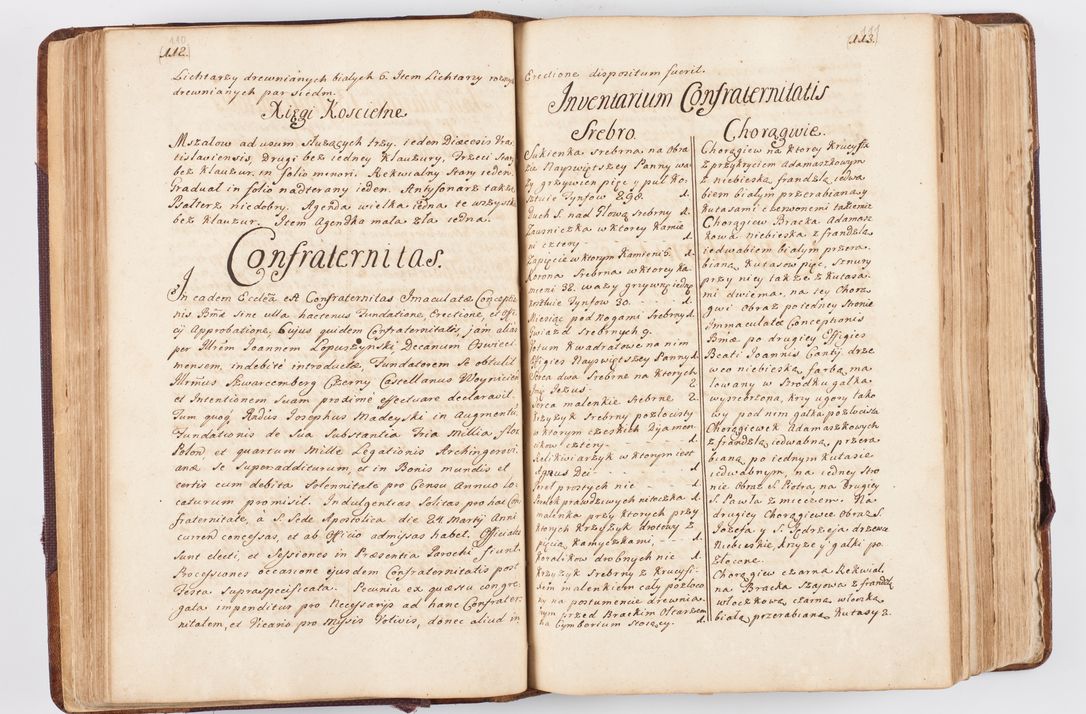 112.
Lichtarzy drewnianych białych 6. Item Lichtarzy
drewnianych par siedm.
Xięgi Koscielne
Mszałow ad usum służących trzy, ieden Diæcesis Vra
tislaviensis, Drugi bez iedney Klauzury, Trzeci Stary
bez Klauzur in folio minori. Rekwialny Stary ieden.
Gradual in folio nadterany ieden. Antyfonarz także
Psałterz niedobry. Agenda wielka iedna te wszystkie
bez Klauzur. Item Agendka mała zła iedna.
Confraternitas.
In eadem Ecclã est Confraternitas Imaculatæ Conceptio
nis Bmæ sine ulla hactenus Fundatione, Erectione, et Offi
cij Approbatione, Cujus quidem Confraternitatis, jam alias
per Illrem Joannem Łopuszyński, Decanum Oswieci
mensem, indebite introductæ, Fundatorem Se obtulit
Illrmus Szwarcemberg Czerny Castellanus Woynicien
et Intentionem Suam prodime effectuare declaravit.
Tum quoq Rndus Josephus Madeyski in Augmentu
Fundationis de Sua Substantia Tria Millia flor
Polon et quartum Mille Legationis Archingerevi
anæ Se Superadditurum, et in Bonis mundis et
certis cum debita Solennitate pro Censu Annuo Lo
caturum promisit. Indulgentias Solitas pro hac Con
fraternitate, à S. Sede Apostolica die 24 Martij Anni
curren concessas, et ab Officio admissas habet. Officiales
Sunt electi, et Sessiones in Præsentia Parochi fiunt.
Processiones occasione ejusdem Confraternitatis post
Festa Supraspecificata. Pecunia ex quæstu congre
gata impenditur pro Necessarijs ad hanc Confrater
nitatem, et Vicario pro Missis Votivis, donec aliud in
113.
Erectione dispositum fuerit.
Inventarium Confraternitatis
Srebro.
Sukienka Srebrna na Obra
zie Nayswiętszey Panny wa
ży grzywien pięc, y puł Ko
sztuie Tynfow 298. 1.
Duch S. nad Głową Srebrny 1.
Zauszniczka w ktorey Kamie
ni cztery 1.
Zapięcie w ktorym Kamieni 6. 1.
Korona Srebrna w ktorey ka
mieni 32. waży grzywnę iedną
kosztuie Tynfow 30. 1.
Miesiąc pod Nogami Srebrny 1.
Gwiazd Srebrnych 9.
Votum Kwadratowe na nim
Effigies Nayswiętszey Panny 1.
Serca dwa Srebrne na Ktorych
Imię Jezus 2
Serca malenkie Srebrne 2
Krzyżyk Srebrny pozłocisty
w ktorym czeskich Dyamen
cikow cztery 1.
Relikwiarzyk w Ktorym iest
Agnus Dei 1.
Pereł prostych nie 1.
Perełek prawdziwych niteczka 1.
malenka przy Ktorych przy
ktorych Krzyżyk drotowy z
pięcią Kamyczkami, 1.
Koralikow drobnych nic 1.
Krzyżyk Srebrny z Krucyfi
xem malenkiem cały pozłoco
ny na postumencie drewnia
nym przed Brackim Ołtarzem
na Cymborium Stoiący. 1.
Chorągwie.
Chorągiew na Ktorey Krucyfix
z przykryciem Adamaszkowym
z niebieską frandzlą iedwa
biem białym przerabianą, y
Kutasami czerwonemi takiemiż
Chorągiew Bracka Adamasz
kowa niebieska z frandzlą
iedwabiem białym przera
bianą, Kutasow pięc, Sznury
przy niey także z Kutasa
mi dwiema, na tey Chorą
gwi Obraz po iedney Stronie
Immaculatæ Conceptionis
Bmæ po drugiey Effigies
Beati Joannis Cantij, drze
wco niebieską farbą ma
lowany w Srodku gałka
wysrebrzona, Krzy u gory tako
wy pod nim gałka pozłocista
Chorągiewek Adamaszkowych
z frandzlą iedwabną, przera
bianą po iednym Kutasie
iedwabnym, na iedney Stro
nie Obraz S. Piotra na Drugiey
S. Pawła z mieczem. Na
drugiey Chorągiewce Obraz S.
Jozefa y S. Jędrzeia drzewa
Niebieskie, Krzyże y gałki po
złocone.
Chorągiew czarna Rekwial
na Bracka Szajowa z frandzlą
włoczkową czarną włoczką
białą przerabianą, Kutasy 2.